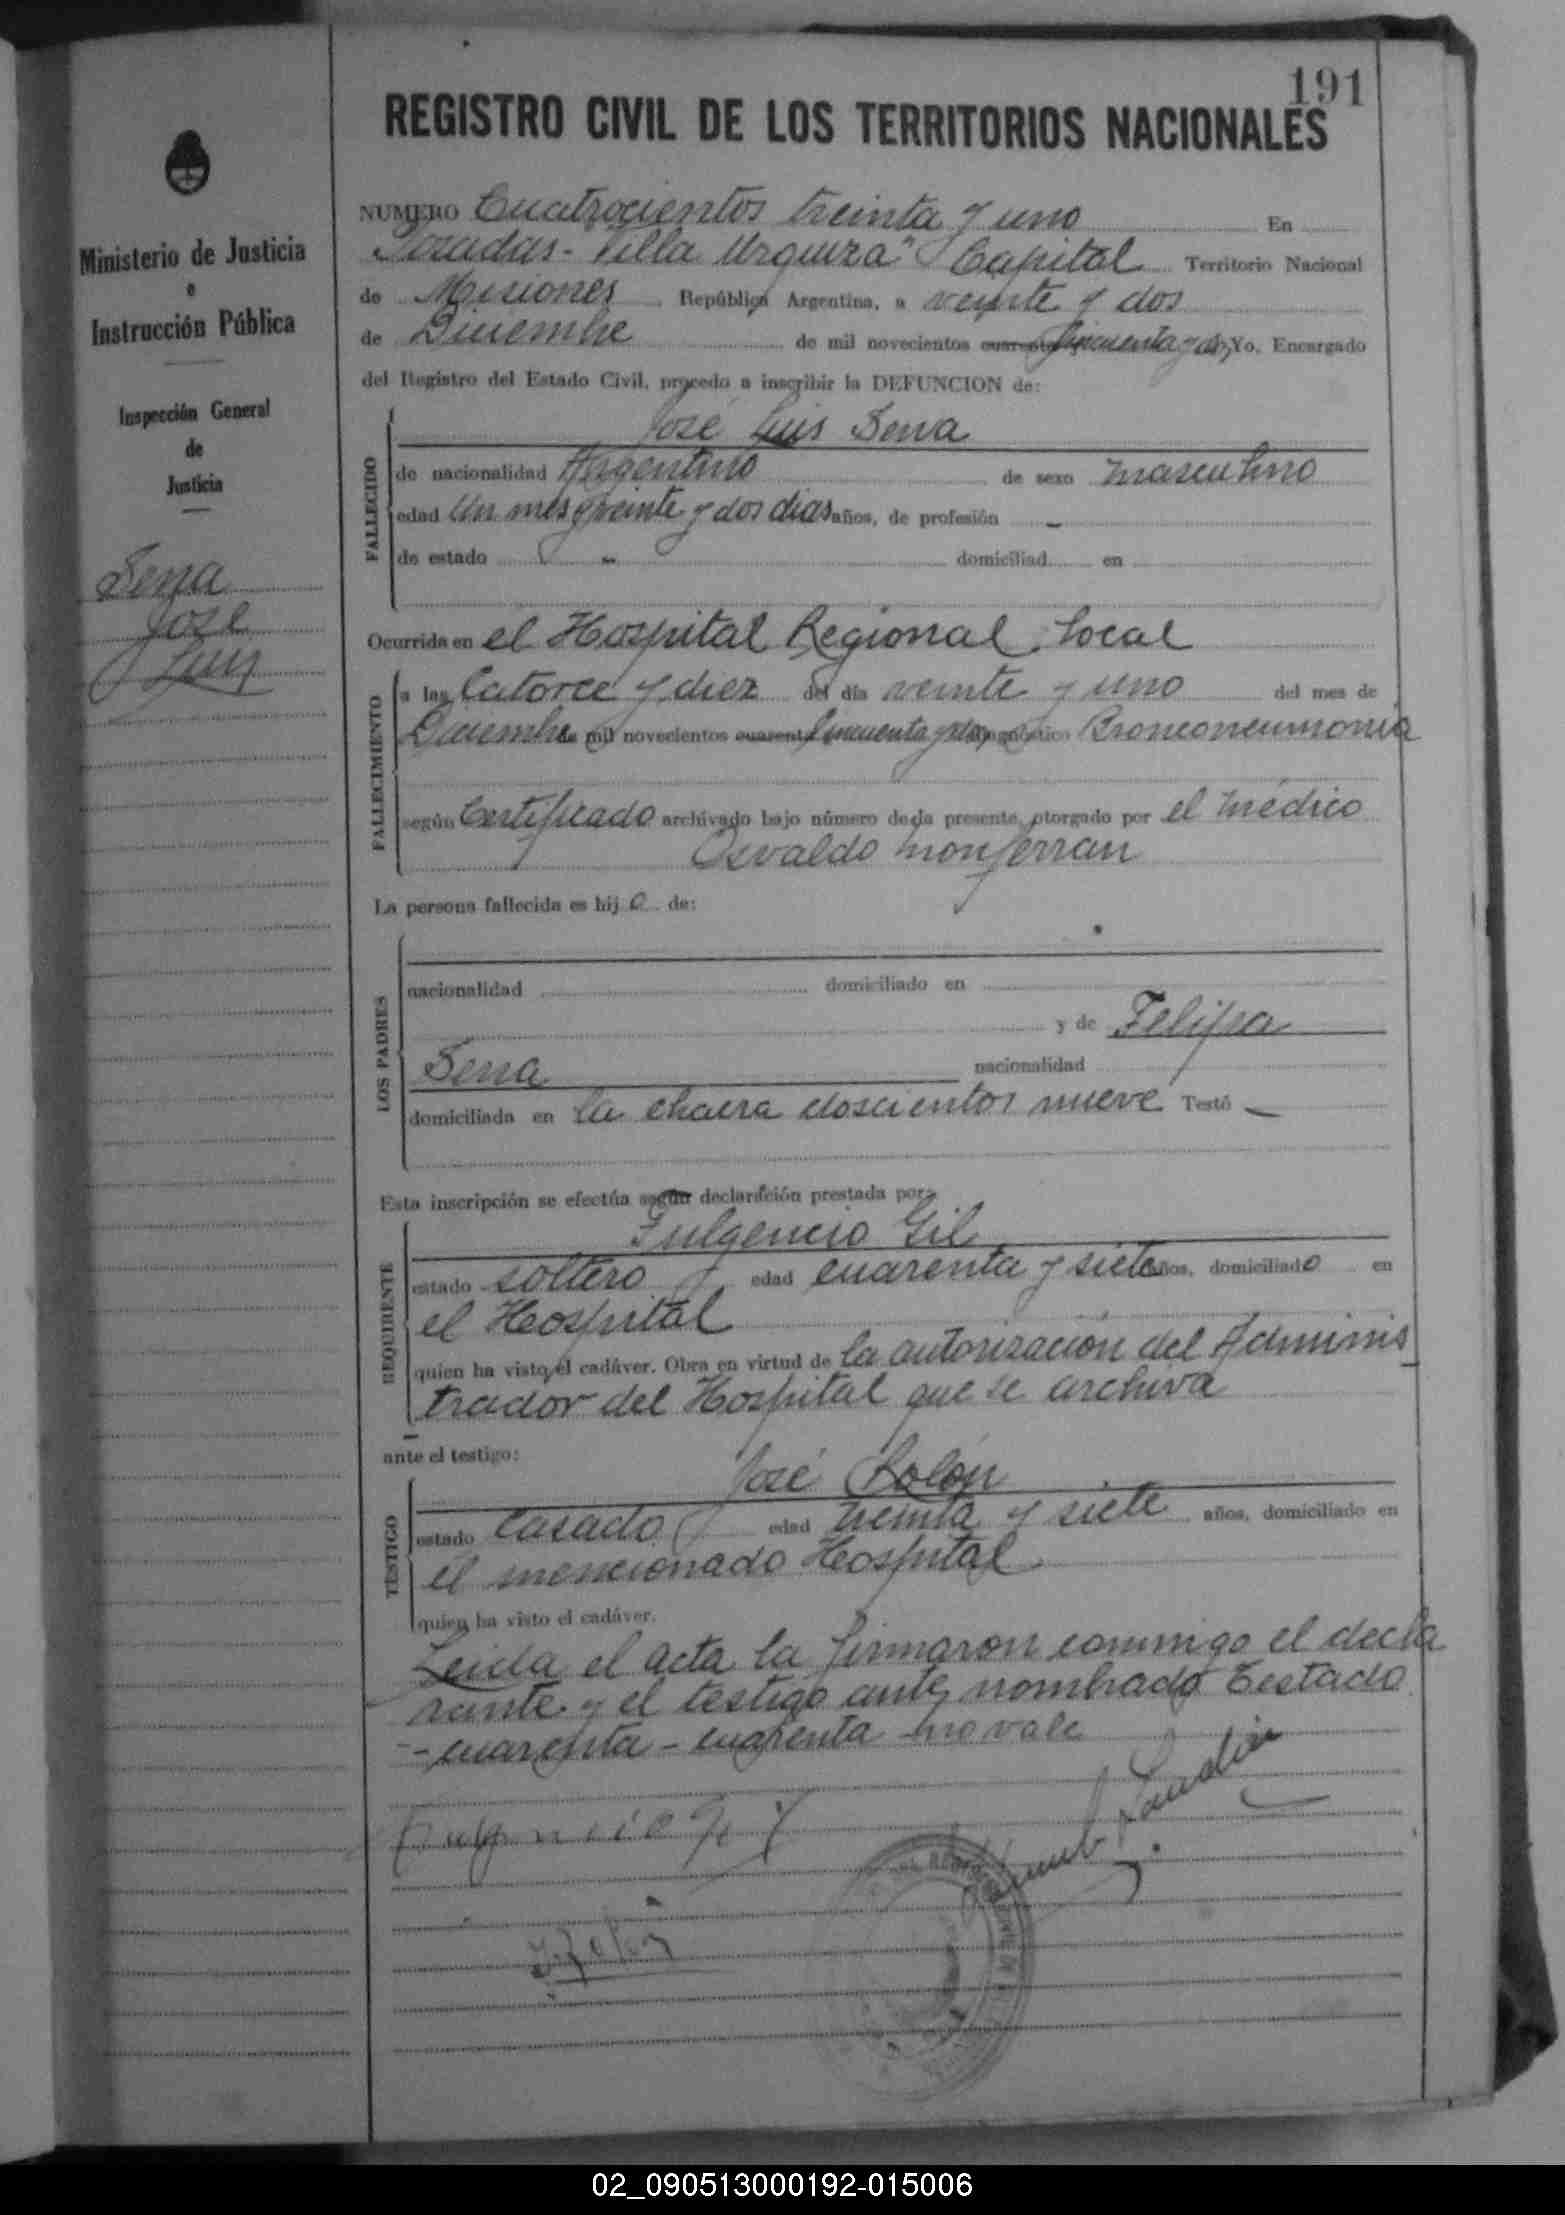 191
REGISTRO CIVIL DE LOS TERRITORIOS NACIONALES
Ministerio de Justicia
e
Instrucción Pública
Inspección General
de
Justicia
Sena
José
Luis
NUMERO Cuatrocientos treinta y uno En
Posadas - Villa Urquiza" Capital Territorio Nacional
de Misiones República Argentina, a veinte y dos
de Diciembre de mil novecientos cuarenta cincuenta y dos, Yo, Encargado
del Registro del Estado Civil, procedo a inscribir la DEFUNCION de:
FALLECIDO
José Luis Sena
de nacionalidad Argentino de sexo masculino
edad Un mes y veinte y dos días años, de profesión -
de estado - domiciliad en
Ocurrida en el Hospital Regional local
FALLECIMIENTO
a las Catorce y diez del día veinte y uno del mes de
Diciembre de mil novecientos cuarenta cincuenta y dos diagnóstico Bronconeumonia
según Certificado archivado bajo número de la presente, otorgado por el médico
Osvaldo Monferran
La persona fallecida es hij o de:
LOS PADRES
nacionalidad domiciliado en
y de Felipa
Sena nacionalidad
domiciliada en la chacra doscientos nueve Testó -
Esta inscripción se efectúa según declaración prestada por:
REQUIRENTE
Fulgencio Gil
estado soltero edad cuarenta y siete años, domiciliado en
el Hospital
quien ha visto el cadáver. Obra en virtud de la autorización del Adminis
trador del Hospital que se archiva
ante el testigo:
TESTIGO
José Rolón
estado Casado edad treinta y siete años, domiciliado en
el mencionado Hospital
quien ha visto el cadáver.
Leida el acta la firmaron conmigo el decla
rante y el testigo ante nombrado Testado
- cuarenta - cuarenta - no vale
02_090513000192-015006